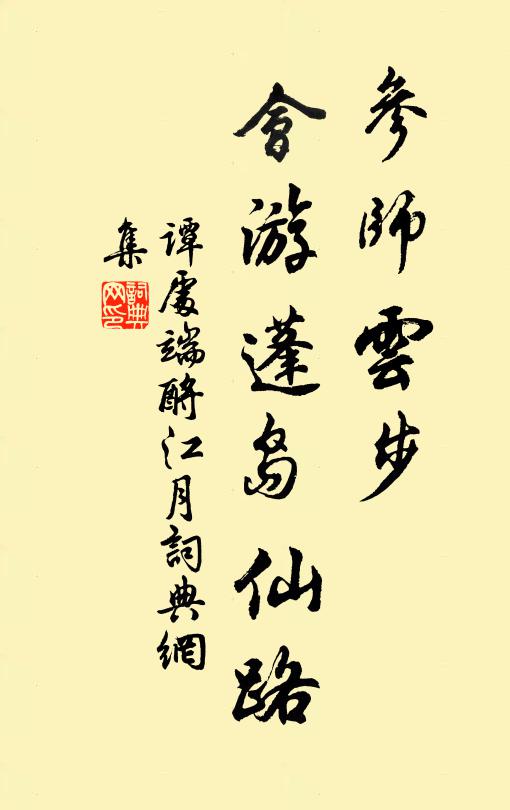 參師雲步
會游蓬島仙路
譚處端酹江月詞典網
集
詞典網印